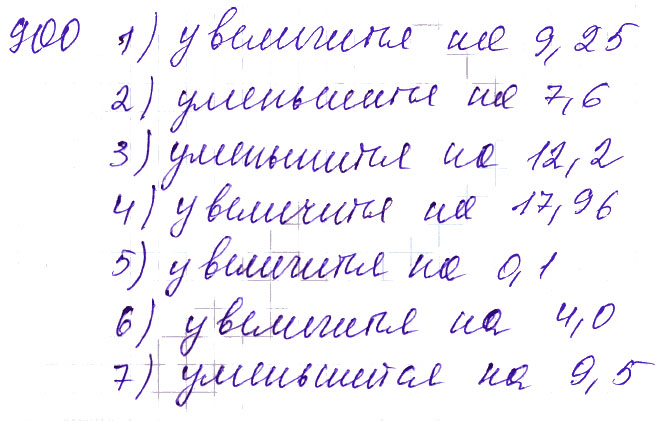 900 1) увеличится на 9,25
2) уменьшится на 7,6
3) уменьшится на 12,2
4) увеличится на 17,96
5) увеличится на 0,1
6) увеличится на 4,0
7) уменьшится на 9,5